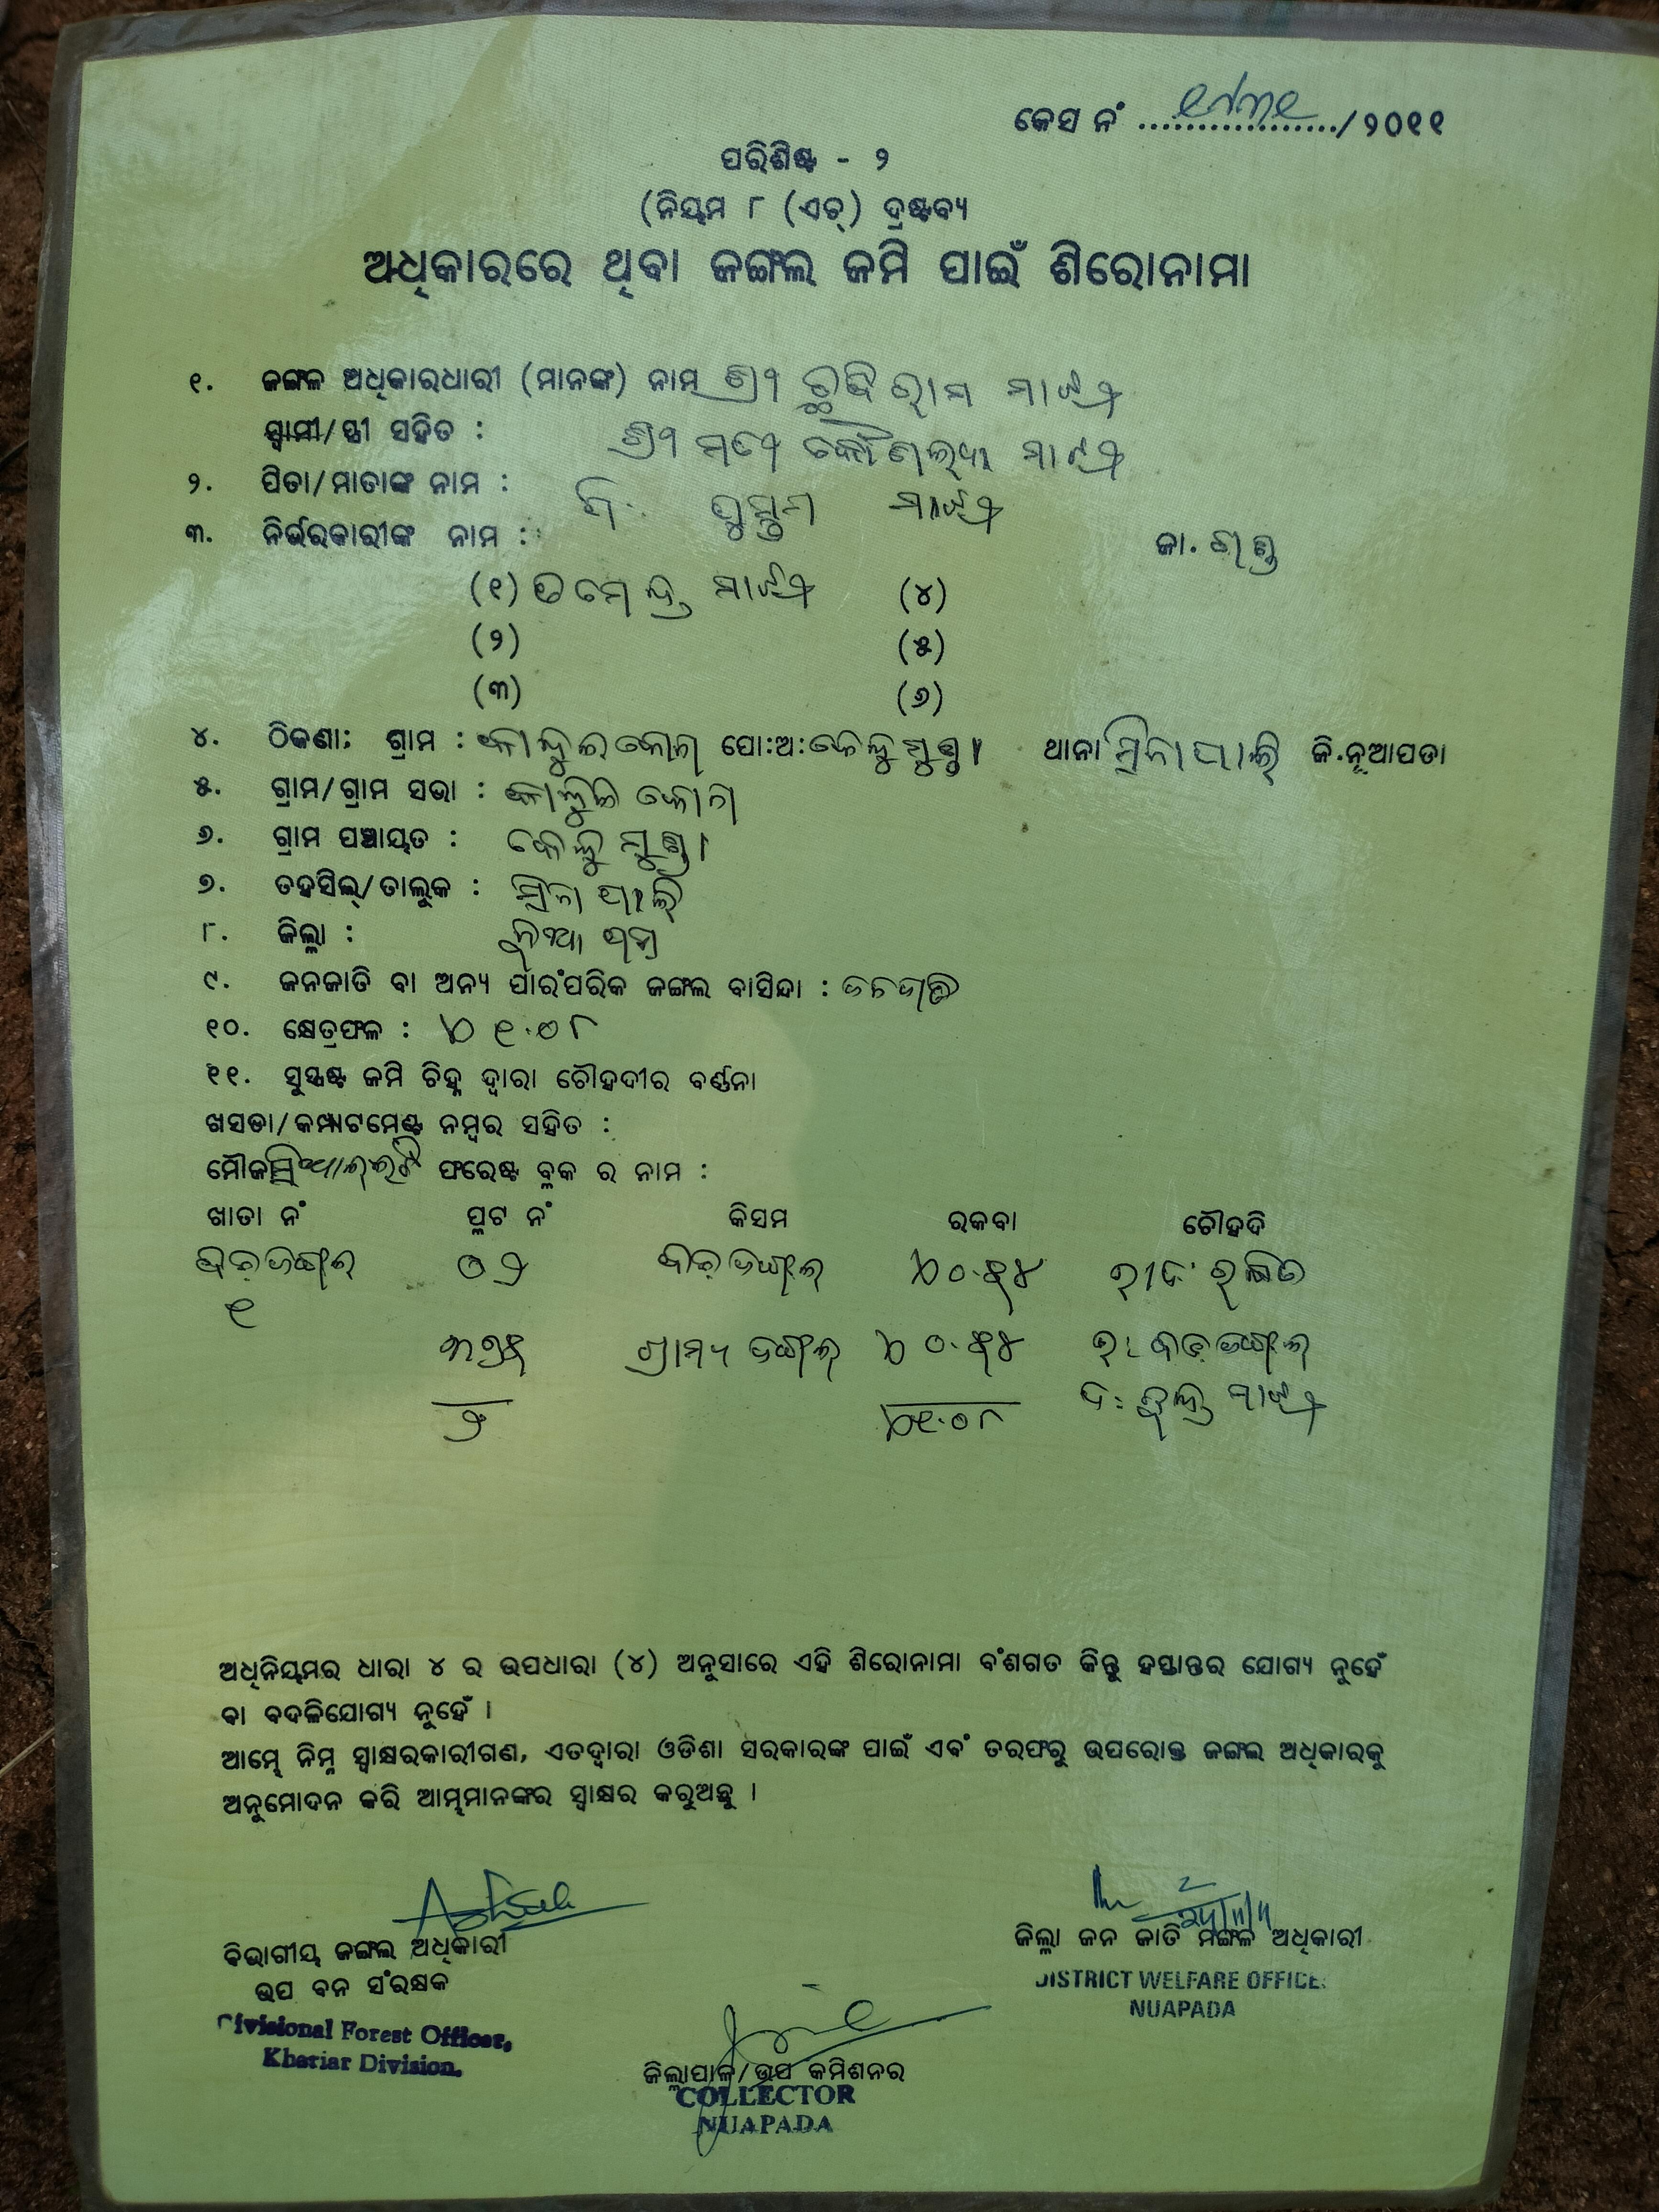 କେସ ନଂ ................./୨୦୧୧
ପରିଶିଷ୍ଟ - ୨
(ନିୟମ ୮ (ଏଚ୍) ଦ୍ରଷ୍ଟବ୍ୟ
ଅଧିକାରରେ ଥିବା ଜଙ୍ଗଲ ଜମି ପାଇଁ ଶିରୋନାମା
୧. ଜଙ୍ଗଳ ଅଧିକାରଧାରୀ (ମାନଙ୍କ) ନାମ ଶ୍ରୀ ଛବିରାମ ମାଝୀ
ସ୍ଵାମୀ/ସ୍ତ୍ରୀ ସହିତ : ଶ୍ରୀମତୀ କୌଶଲ୍ୟା ମାଝୀ
୨. ପିତା/ମାତାଙ୍କ ନାମ : ମାଝୀ
୩. ନିର୍ଭରକାରୀଙ୍କ ନାମ : ଜା. ଗଣ୍ଡ
(୧) ମାଝୀ (୪)
(୨) (୫)
(୩) (୬)
୪. ଠିକଣା: ଗ୍ରାମ : ପୋ:ଅ: କେନ୍ଦୁମୁଣ୍ଡା ଥାନା ସିନାପାଲି ଜି.ନୂଆପଡା
୫. ଗ୍ରାମ/ଗ୍ରାମ ସଭା :
୬. ଗ୍ରାମ ପଞ୍ଚାୟତ : କେନ୍ଦୁମୁଣ୍ଡା
୭. ତହସିଲ୍/ତାଲୁକ : ସିନାପାଲି
୮. ଜିଲ୍ଲା : ନୂଆପଡା
୯. ଜନଜାତି ବା ଅନ୍ୟ ପାରଂପରିକ ଜଙ୍ଗଲ ବାସିନ୍ଦା : ଜନଜାତି
୧୦. କ୍ଷେତ୍ରଫଳ : ୧.୦୮
୧୧. ସୁସ୍ପଷ୍ଟ ଜମି ଚିହ୍ନ ଦ୍ଵାରା ଚୌହଦୀର ବର୍ଣ୍ଣନା
ଖସଡା/କମ୍ପାଟମେଣ୍ଟ ନମ୍ବର ସହିତ :
ମୌଜା ଫରେଷ୍ଟ ବ୍ଲକ ର ନାମ :
ଖାତା ନଂ ପ୍ଲଟ ନଂ କିସମ ରକବା ଚୌହଦି
ବଡଜଙ୍ଗଲ ୦୨ ବଡଜଙ୍ଗଲ ୦.୫୪
୧
୩୭୫ ଗ୍ରାମ୍ୟ ଜଙ୍ଗଲ ୦.୫୪ ଉ: ବଡଜଙ୍ଗଲ
୨ ୧.୦୮ ଦ: ମାଝୀ
ଅଧିନିୟମର ଧାରା ୪ ର ଉପଧାରା (୪) ଅନୁସାରେ ଏହି ଶିରୋନାମା ବଂଶଗତ କିନ୍ତୁ ହସ୍ତାନ୍ତର ଯୋଗ୍ୟ ନୁହେଁ
ବା ବଦଳିଯୋଗ୍ୟ ନୁହେଁ ।
ଆମ୍ଭେ ନିମ୍ନ ସ୍ଵାକ୍ଷରକାରୀଗଣ, ଏତଦ୍ଵାରା ଓଡିଶା ସରକାରଙ୍କ ପାଇଁ ଏବଂ ତରଫରୁ ଉପରୋକ୍ତ ଜଙ୍ଗଲ ଅଧିକାରକୁ
ଅନୁମୋଦନ କରି ଆମ୍ଭମାନଙ୍କର ସ୍ଵାକ୍ଷର କରୁଅଛୁ ।
ବିଭାଗୀୟ ଜଙ୍ଗଲ ଅଧିକାରୀ
ଉପ ବନ ସଂରକ୍ଷକ
Divisional Forest Officer,
Khariar Division.
ଜିଲ୍ଲା ଜନ ଜାତି ମଙ୍ଗଳ ଅଧିକାରୀ
DISTRICT WELFARE OFFICE
NUAPADA
ଜିଲ୍ଲାପାଳ/ଉପ କମିଶନର
COLLECTOR
NUAPADA